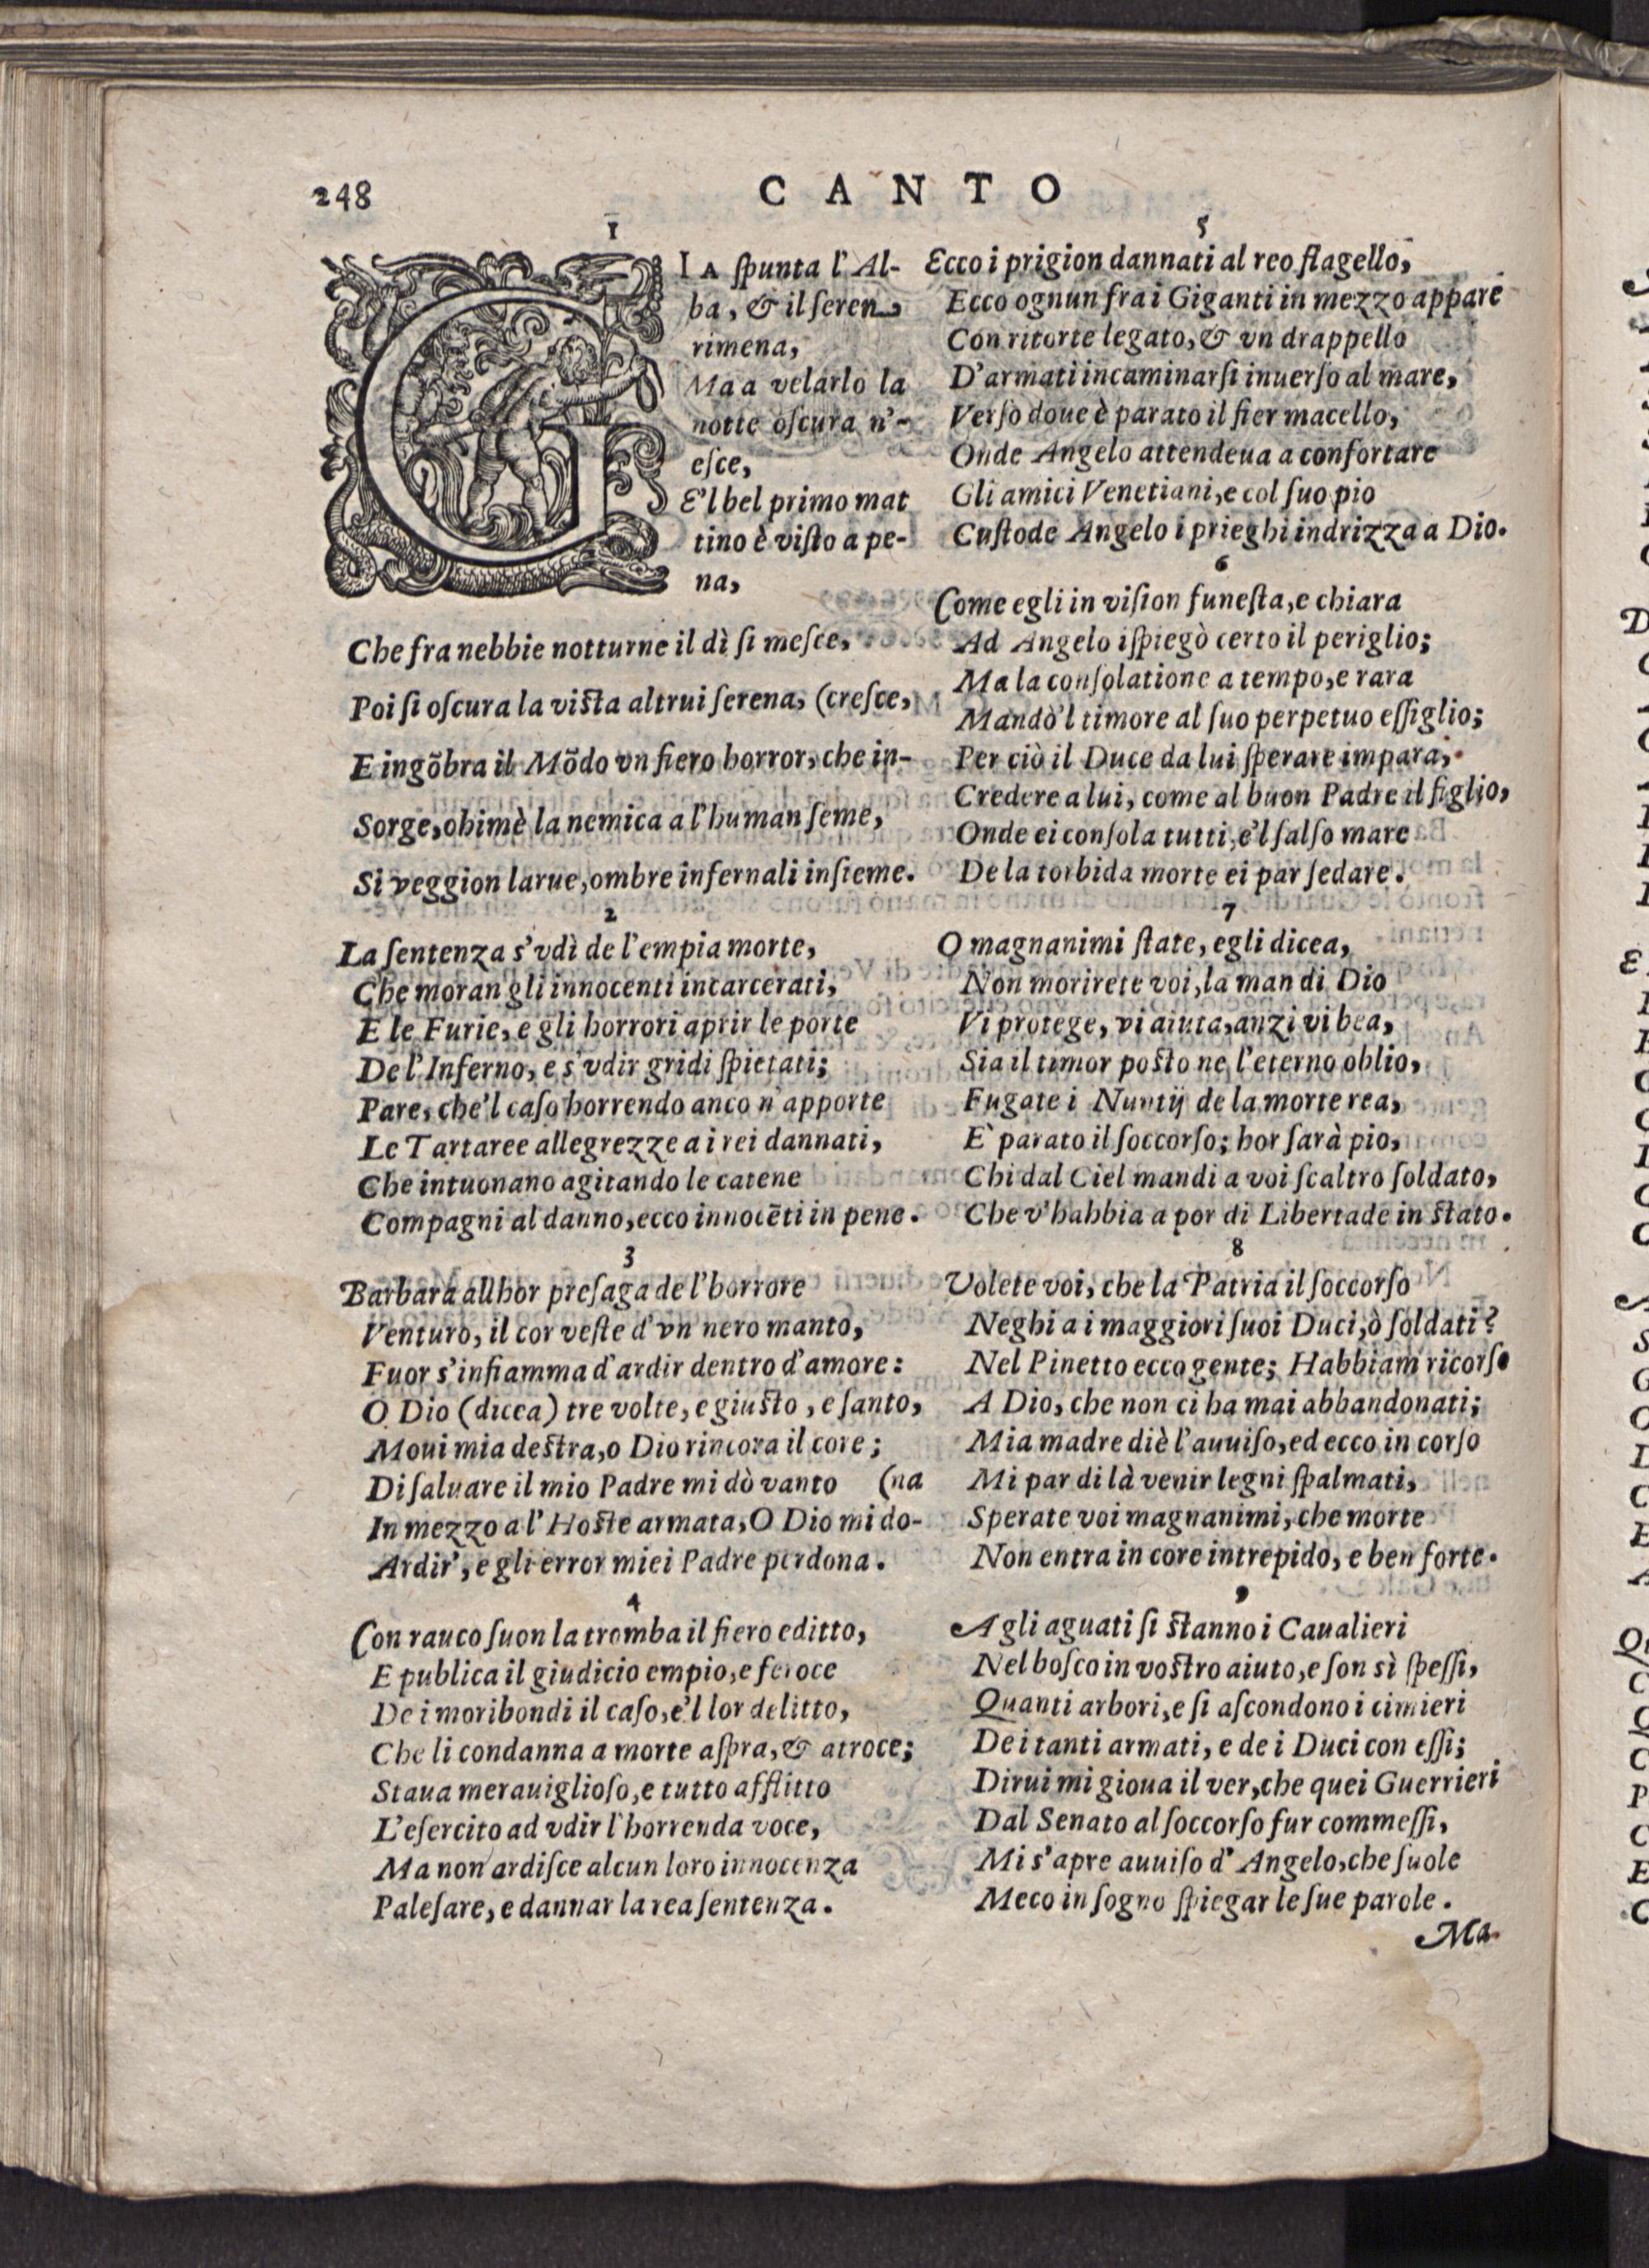 248
CANTO
1
GIA ſpunta l'Al-
ba, & il ſeren
rimena,
Ma a velarlo la
notte oſcura n'-
eſce,
E'l bel primo mat
tino è viſto a pe-
na,
Che fra nebbie notturne il dì ſi meſce,
Poi ſi oſcura la viſta altrui ſerena, (creſce,
E ingõbra il Mõdo vn fiero horror, che in-
Sorge, ohimè la nemica a l'human ſeme,
Si veggion larue, ombre infernali inſieme.
2
La ſentenza s'vdì de l'empia morte,
Che moran gli innocenti incarcerati,
E le Furie, e gli horrori aprir le porte
De l'Inferno, e s'vdir gridi ſpietati;
Pare, che'l caſo horrendo anco n'apporte
Le Tartaree allegrezze a i rei dannati,
Che intuonano agitando le catene
Compagni al danno, ecco innocẽti in pene.
3
Barbara allhor preſaga de l'horrore
Venturo, il cor veſte d'vn nero manto,
Fuor s'infiamma d'ardir dentro d'amore:
O Dio (dicea) tre volte, e giuſto, e ſanto,
Moui mia deſtra, o Dio rincora il core;
Di ſaluare il mio Padre mi dò vanto (na
In mezzo a l'Hoſte armata, O Dio mi do-
Ardir', e gli error miei Padre perdona.
4
Con rauco ſuon la tromba il fiero editto,
E publica il giudicio empio, e feroce
De i moribondi il caſo, e'l lor delitto,
Che li condanna a morte aſpra, & atroce;
Staua merauiglioſo, e tutto afflitto
L'eſercito ad vdir l'horrenda voce,
Ma non ardiſce alcun loro innocenza
Paleſare, e dannar la rea ſentenza.
5
Ecco i prigion dannati al reo flagello,
Ecco ognun fra i Giganti in mezzo appare
Con ritorte legato, & vn drappello
D'armati incaminarſi inuerſo al mare,
Verſo doue è parato il fier macello,
Onde Angelo attendeua a confortare
Gli amici Venetiani, e col ſuo pio
Cuſtode Angelo i prieghi indrizza a Dio.
6
Come egli in viſion funeſta, e chiara
Ad Angelo iſpiegò certo il periglio;
Ma la conſolatione a tempo, e rara
Mandò'l timore al ſuo perpetuo eſſiglio;
Per ciò il Duce da lui ſperare impara,
Credere a lui, come al buon Padre il figlio,
Onde ei conſola tutti, e'l ſalſo mare
De la torbida morte ei par ſedare.
7
O magnanimi ſtate, egli dicea,
Non morirete voi, la man di Dio
Vi protege, vi aiuta, anzi vi bea,
Sia il timor poſto ne l'eterno oblio,
Fugate i Nuntij de la morte rea,
E' parato il ſoccorſo; hor ſarà pio,
Chi dal Ciel mandi a voi ſcaltro ſoldato,
Che v'habbia a por di Libertade in ſtato.
8
Volete voi, che la Patria il ſoccorſo
Neghi a i maggiori ſuoi Duci, ò ſoldati?
Nel Pinetto ecco gente; Habbiam ricorſo
A Dio, che non ci ha mai abbandonati;
Mia madre diè l'auuiſo, ed ecco in corſo
Mi par di là venir legni ſpalmati,
Sperate voi magnanimi, che morte
Non entra in core intrepido, e ben forte.
9
A gli aguati ſi ſtanno i Caualieri
Nel boſco in voſtro aiuto, e ſon sì ſpeſſi,
Quanti arbori, e ſi aſcondono i cimieri
De i tanti armati, e de i Duci con eſſi;
Dirui mi gioua il ver, che quei Guerrieri
Dal Senato al ſoccorſo fur commeſſi,
Mi s'apre auuiſo d'Angelo, che ſuole
Meco in ſogno ſpiegar le ſue parole.
Ma